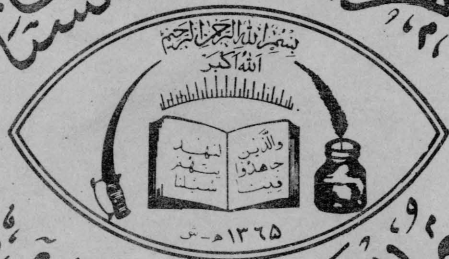 بسم الله الرحمن الرحیم
الله اکبر
والذین
جهدوا
فینا
لنهد
ینهم
سبلنا
۱۳۶۵ ه‍ - ش